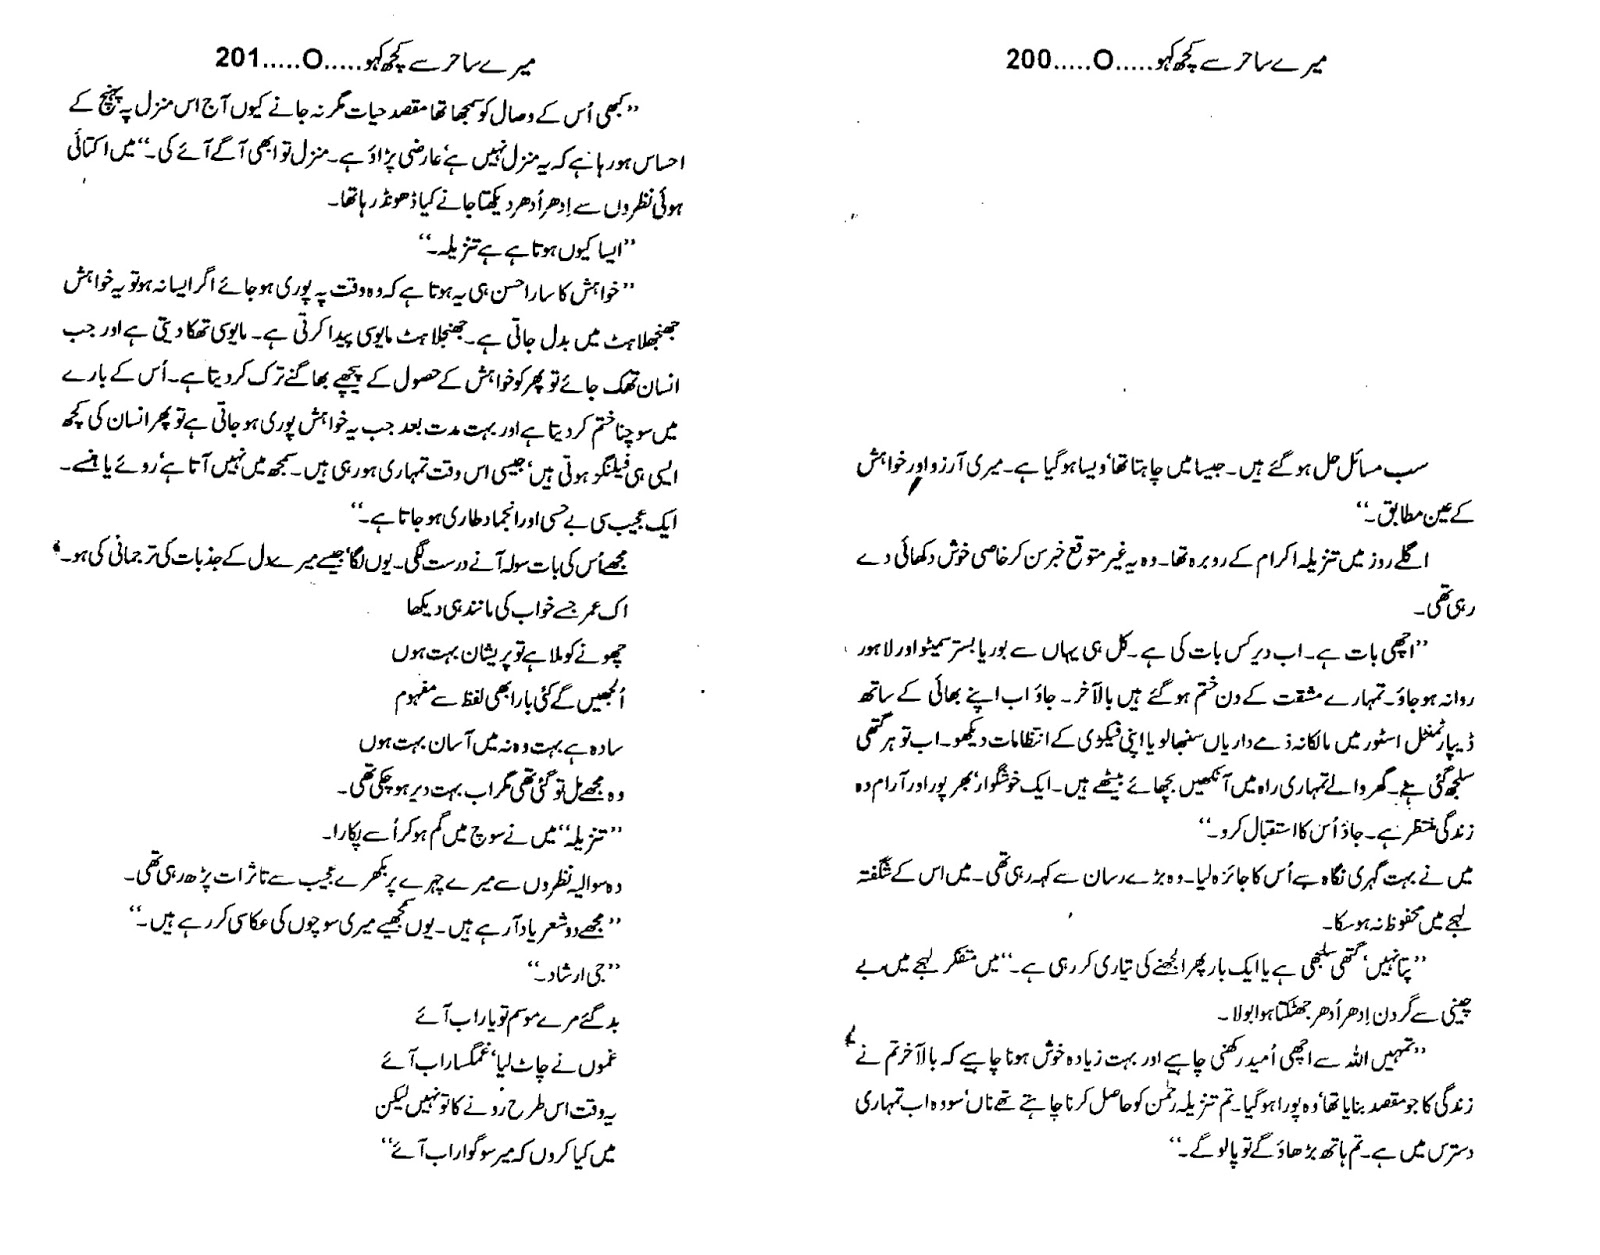 میرے ساحر سے کچھ کہو.....O.....200
سب مسائل حل ہو گئے ہیں۔ جیسا میں چاہتا تھا‘ ویسا ہو گیا ہے۔ میری آرزو اور خواہش
کے عین مطابق۔‘‘
اگلے روز میں تنزیلہ اکرام کے روبرو تھا۔ وہ یہ غیر متوقع خبر سن کر خاصی خوش دکھائی دے
رہی تھی۔
’’اچھی بات ہے۔ اب دیر کس بات کی ہے۔ کل ہی یہاں سے بوریا بستر سمیٹو اور لاہور
روانہ ہو جاؤ۔ تمہارے مشقت کے دن ختم ہو گئے ہیں بالآخر۔ جاؤ اب اپنے بھائی کے ساتھ
ڈیپارٹمنٹل اسٹور میں مالکانہ ذمے داریاں سنبھالو یا اپنی فیکٹری کے انتظامات دیکھو۔ اب تو ہر گتھی
سلجھ گئی ہے۔ گھر والے تمہاری راہ میں آنکھیں بچھائے بیٹھے ہیں۔ ایک خوشگوار‘ بھرپور اور آرام دہ
زندگی منتظر ہے۔ جاؤ اُس کا استقبال کرو۔‘‘
میں نے بہت گہری نگاہ سے اُس کا جائزہ لیا۔ وہ بڑے رسان سے کہہ رہی تھی۔ میں اس کے شگفتہ
لہجے میں محفوظ نہ ہو سکا۔
’’پتا نہیں‘ گتھی سلجھی ہے یا ایک بار پھر الجھنے کی تیاری کر رہی ہے۔‘‘ میں متفکر لہجے میں بے
چینی سے گردن اِدھر اُدھر جھٹکتا ہوا بولا۔
’’تمہیں اللہ سے اچھی اُمید رکھنی چاہیے اور بہت زیادہ خوش ہونا چاہیے کہ بالآخر تم نے
زندگی کا جو مقصد بنایا تھا‘ وہ پورا ہو گیا۔ تم تنزیلہ رحمٰن کو حاصل کرنا چاہتے تھے ناں‘ سو وہ اب تمہاری
دسترس میں ہے۔ تم ہاتھ بڑھاؤ گے تو پا لو گے۔‘‘
میرے ساحر سے کچھ کہو.....O.....201
’’کبھی اُس کے وصال کو سمجھا تھا مقصد حیات مگر نہ جانے کیوں آج اس منزل پہ پہنچ کے
احساس ہو رہا ہے کہ یہ منزل نہیں ہے‘ عارضی پڑاؤ ہے۔ منزل تو ابھی آگے آئے گی۔‘‘ میں اکتائی
ہوئی نظروں سے اِدھر اُدھر دیکھتا جانے کیا ڈھونڈ رہا تھا۔
’’ایسا کیوں ہوتا ہے ہے تنزیلہ۔‘‘
’’خواہش کا سارا حسن ہی یہ ہوتا ہے کہ وہ وقت پہ پوری ہو جائے اگر ایسا نہ ہو تو یہ خواہش
جھنجھلاہٹ میں بدل جاتی ہے۔ جھنجلاہٹ مایوسی پیدا کرتی ہے۔ مایوسی تھکا دیتی ہے اور جب
انسان تھک جائے تو پھر کو خواہش کے حصول کے پیچھے بھاگنے ترک کر دیتا ہے۔ اُس کے بارے
میں سوچنا ختم کر دیتا ہے اور بہت مدت بعد جب یہ خواہش پوری ہو جاتی ہے تو پھر انسان کی کچھ
ایسی ہی فیلنگز ہوتی ہیں‘ جیسی اس وقت تمہاری ہو رہی ہیں۔ سمجھ میں نہیں آتا ہے‘ روئے یا ہنسے۔
ایک عجیب سی بے حسی اور انجماد طاری ہو جاتا ہے۔‘‘
مجھے اُس کی بات سولہ آنے درست لگی۔ یوں لگا‘ جیسے میرے دل کے جذبات کی ترجمانی کی ہو۔
اک عمر جسے خواب کی مانند ہی دیکھا
چھونے کو ملا ہے تو پریشان بہت ہوں
اُلجھیں گے کئی بار ابھی لفظ سے مفہوم
سادہ ہے بہت وہ نہ میں آسان بہت ہوں
وہ مجھے مل تو گئی تھی مگر اب بہت دیر ہو چکی تھی۔
’’تنزیلہ‘‘ میں نے سوچ میں گم ہو کر اُسے پکارا۔
وہ سوالیہ نظروں سے میرے چہرے پر بکھرے عجیب سے تاثرات پڑھ رہی تھی۔
’’مجھے دو شعر یاد آ رہے ہیں۔ یوں سمجھیے میری سوچوں کی عکاسی کر رہے ہیں۔‘‘
’’جی ارشاد۔‘‘
بد گئے مرے موسم تو یار اب آئے
غموں نے چاٹ لیا‘ غمگسار اب آئے
یہ وقت اس طرح رونے کا تو نہیں لیکن
میں کیا کروں کہ میر سوگوار اب آئے‘‘